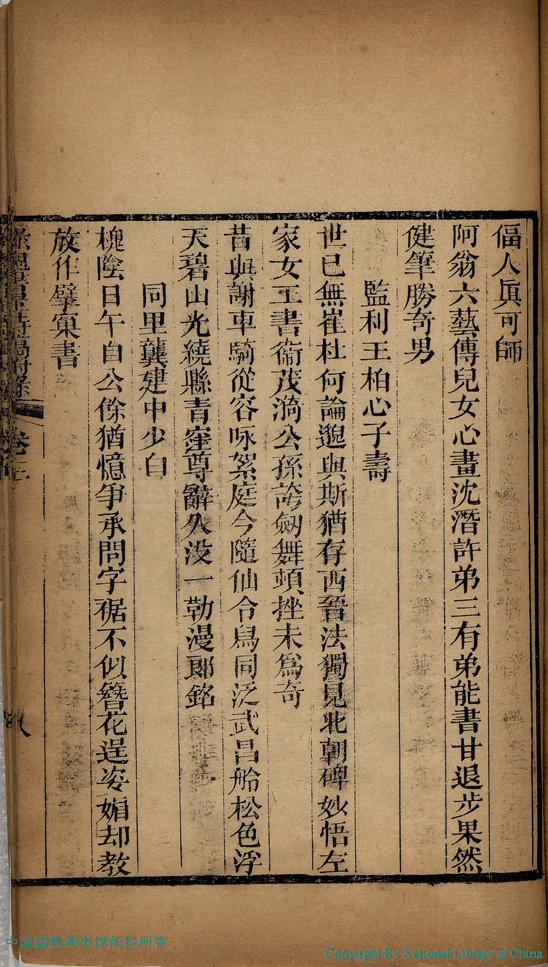 偪人眞可師
阿翁六藝傳兒女心畫沈潛許弟三有弟能書甘退步果然
健筆勝奇男
監利王柏心子壽
世已無崔杜何論邈與斯猶存西晉法獨見北朝碑妙悟左
家女工書衞茂漪公孫誇劒舞頓挫未爲奇
昔與謝車騎從容咏絮庭今隨仙令舄同泛武昌舲松色浮
天碧山光繞縣青窪尊辭久没一勒漫郞銘
同里龔建中少白
槐陰日午自公餘猶憶爭承問字裾不似簪花逞姿媚却教
放作擘窠書
卷十二
八
中国国家图书馆版权所有
Copyright By National Library of China